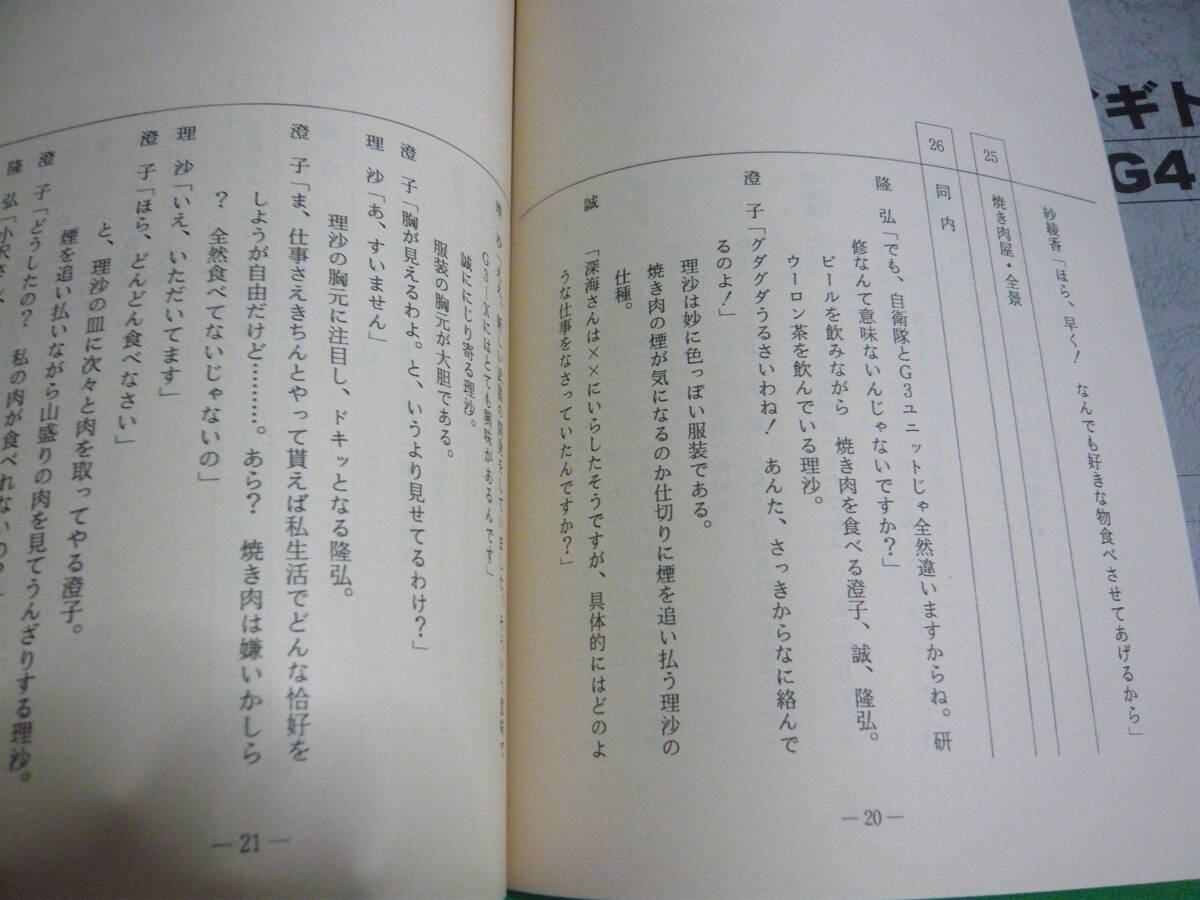 紗綾香「ほら、早く！　なんでも好きな物食べさせてあげるから」
25
焼き肉屋・全景
26
同　内
隆　弘「でも、自衛隊とG3ユニットじゃ全然違いますからね。研
修なんて意味ないんじゃないですか？」
ビールを飲みながら　焼き肉を食べる澄子、誠、隆弘。
ウーロン茶を飲んでいる理沙。
澄　子「グダグダうるさいわね！　あんた、さっきからなに絡んで
るのよ！」
理沙は妙に色っぽい服装である。
焼き肉の煙が気になるのか仕切りに煙を追い払う理沙の
仕種。
誠　　「深海さんは××にいらしたそうですが、具体的にはどのよ
うな仕事をなさっていたんですか？」
—20—
G3—Xにはとても興味があるんです」
誠ににじり寄る理沙。
服装の胸元が大胆である。
澄　子「胸が見えるわよ。と、いうより見せてるわけ？」
理　沙「あ、すいません」
理沙の胸元に注目し、ドキッとなる隆弘。
澄　子「ま、仕事さえきちんとやって貰えば私生活でどんな恰好を
しようが自由だけど………。あら？　焼き肉は嫌いかしら
？　全然食べてないじゃないの」
理　沙「いえ、いただいてます」
澄　子「ほら、どんどん食べなさい」
と、理沙の皿に次々と肉を取ってやる澄子。
煙を追い払いながら山盛りの肉を見てうんざりする理沙。
澄　子「どうしたの？　私の肉が食べれないの？」
隆　弘「小沢さん、
—21—
ギト
G4